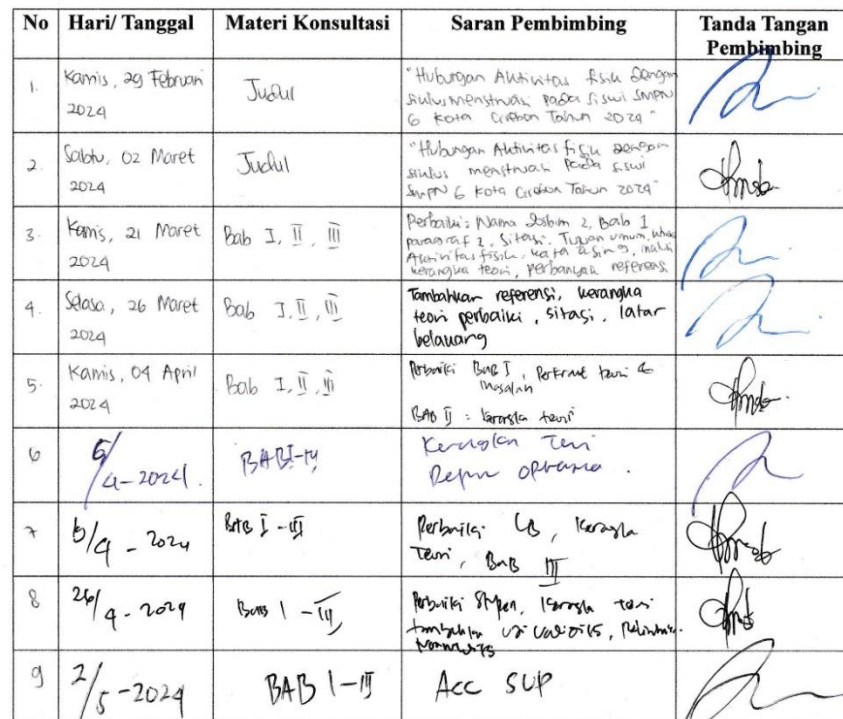 No Hari/ Tanggal Materi Konsultasi Saran Pembimbing Tanda Tangan
Pembimbing
1. Kamis, 29 Februari
2024
Judul
"Hubungan Aktivitas fisik dengan
siklus menstruasi pada siswi SMPN
6 Kota Cirebon Tahun 2024"
2. Sabtu, 02 Maret
2024
Judul
"Hubungan Aktivitas fisik dengan
siklus menstruasi pada siswi
SMPN 6 Kota Cirebon Tahun 2024"
3. Kamis, 21 Maret
2024
Bab I, II, III
Perbaiki: Nama dosbim 2, Bab 1
paragraf 2, sitasi, Tujuan umum,
Aktivitas fisik, kata asing,
kerangka teori, perbanyak referensi
4. Selasa, 26 Maret
2024
Bab I, II, III
Tambahkan referensi, kerangka
teori perbaiki, sitasi, latar
belakang
5. Kamis, 04 April
2024
Bab I, II, III
Perbaiki Bab I, teori &
masalah
BAB II : kerangka teori
6
4-2024
BAB I-
Kerangka Teori
7
4-2024
BAB I-III
Perbaiki LB, kerangka
Teori, BAB III
8 26/4-2024
BAB I-III
Perbaiki, kerangka teori
tambahkan uji validitas,
9 2/5-2024
BAB I-III
Acc SUP